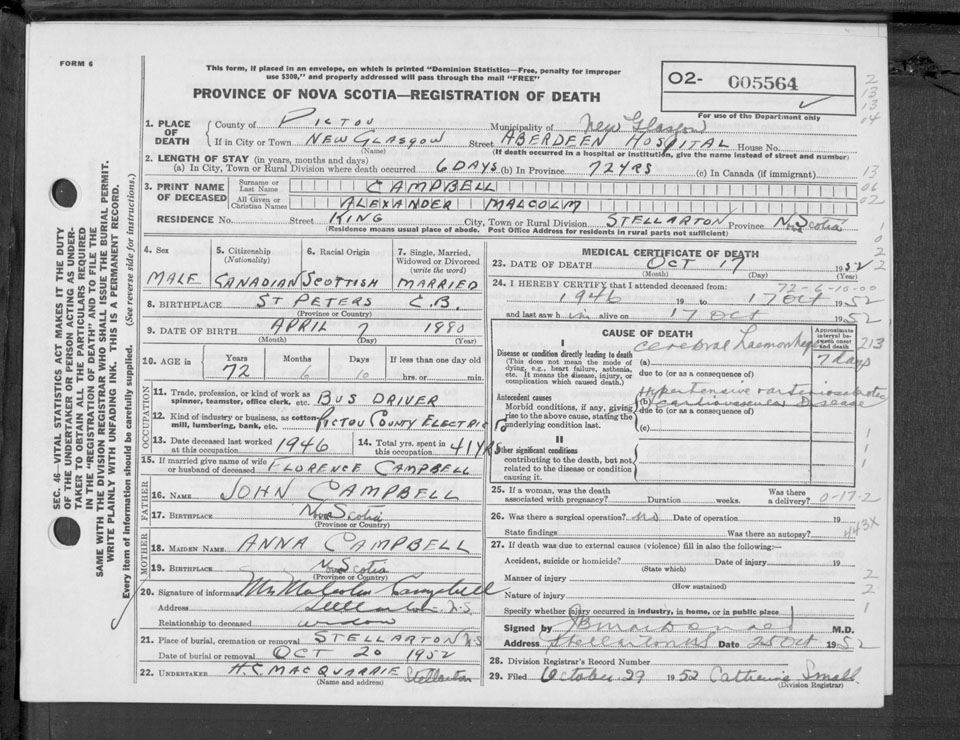 FORM 6
This form, if placed in an envelope, on which is printed "Dominion Statistics—Free, penalty for improper
use $300," and properly addressed will pass through the mail "FREE"
PROVINCE OF NOVA SCOTIA—REGISTRATION OF DEATH
O2- 005564
For use of the Department only
2
13
13
04
1. PLACE OF DEATH
County of PICTOU Municipality of New Glasgow
If in City or Town NEW GLASGOW Street ABERDEEN HOSPITAL House No.
(Name) (If death occurred in a hospital or institution, give the name instead of street and number)
2. LENGTH OF STAY (in years, months and days)
(a) In City, Town or Rural Division where death occurred 6 DAYS (b) In Province 72 YRS (c) In Canada (if immigrant)
13
06
02
3. PRINT NAME OF DECEASED
Surname or Last Name CAMPBELL
All Given or Christian Names ALEXANDER MALCOLM
RESIDENCE No. Street KING City, Town or Rural Division STELLARTON Province N. Scotia
(Residence means usual place of abode. Post Office Address for residents in rural parts not sufficient)
4. Sex
MALE
5. Citizenship (Nationality)
CANADIAN
6. Racial Origin
SCOTTISH
7. Single, Married, Widowed or Divorced (write the word)
MARRIED
8. BIRTHPLACE ST PETERS C.B.
(Province or Country)
9. DATE OF BIRTH APRIL 7 1880
(Month) (Day) (Year)
10. AGE in Years Months Days If less than one day old
72 6 10 hrs. or min.
OCCUPATION
11. Trade, profession, or kind of work as spinner, teamster, office clerk, etc. BUS DRIVER
12. Kind of industry or business, as cotton-mill, lumbering, bank, etc. PICTOU COUNTY ELECTRIC Co
13. Date deceased last worked at this occupation 1946
14. Total yrs. spent in this occupation 41 YRS
15. If married give name of wife or husband of deceased FLORENCE CAMPBELL
FATHER
16. NAME JOHN CAMPBELL
17. BIRTHPLACE Nova Scotia
(Province or Country)
MOTHER
18. MAIDEN NAME ANNA CAMPBELL
19. BIRTHPLACE Nova Scotia
(Province or Country)
20. Signature of informant Mrs Malcolm Campbell
Address Stellarton N.S.
Relationship to deceased widow
21. Place of burial, cremation or removal STELLARTON N.S
Date of burial or removal OCT 20 1952
22. UNDERTAKER H.C. MACQUARRIE Stellarton
(Name and address)
MEDICAL CERTIFICATE OF DEATH
23. DATE OF DEATH OCT 17 1952
(Month) (Day) (Year)
24. I HEREBY CERTIFY that I attended deceased from: 72-6-10-00
1946 19 to 17 Oct 1952
and last saw him alive on 17 Oct 1952
CAUSE OF DEATH
Approximate interval between onset and death
I
Disease or condition directly leading to death
(This does not mean the mode of dying, e.g., heart failure, asthenia, etc. It means the disease, injury, or complication which caused death.)
(a) Cerebral haemorrhage 7 days 213
due to (or as a consequence of)
Antecedent causes
Morbid conditions, if any, giving rise to the above cause, stating the underlying condition last.
Hypertensive arteriosclerotic
(b) cardiovascular Disease
due to (or as a consequence of)
(c)
II
Other significant conditions
contributing to the death, but not related to the disease or condition causing it.
25. If a woman, was the death associated with pregnancy? Duration weeks. Was there a delivery? 0-17-2
26. Was there a surgical operation? no Date of operation 19
State findings Was there an autopsy? 443X
27. If death was due to external causes (violence) fill in also the following:—
Accident, suicide or homicide? Date of injury 19
(State which)
Manner of injury
(How sustained)
Nature of injury
Specify whether injury occurred in industry, in home, or in public place
2
2
1
Signed by M.D.
Address Stellarton NS Date 25 Oct 1952
28. Division Registrar's Record Number
29. Filed October 29 1952 Catherine Small
(Division Registrar)
SEC. 46—VITAL STATISTICS ACT MAKES IT THE DUTY
OF THE UNDERTAKER OR PERSON ACTING AS UNDER-
TAKER TO OBTAIN ALL THE PARTICULARS REQUIRED
IN THE "REGISTRATION OF DEATH" AND TO FILE THE
SAME WITH THE DIVISION REGISTRAR WHO SHALL ISSUE THE BURIAL PERMIT.
WRITE PLAINLY WITH UNFADING INK. THIS IS A PERMANENT RECORD.
Every item of information should be carefully supplied. (See reverse side for instructions.)